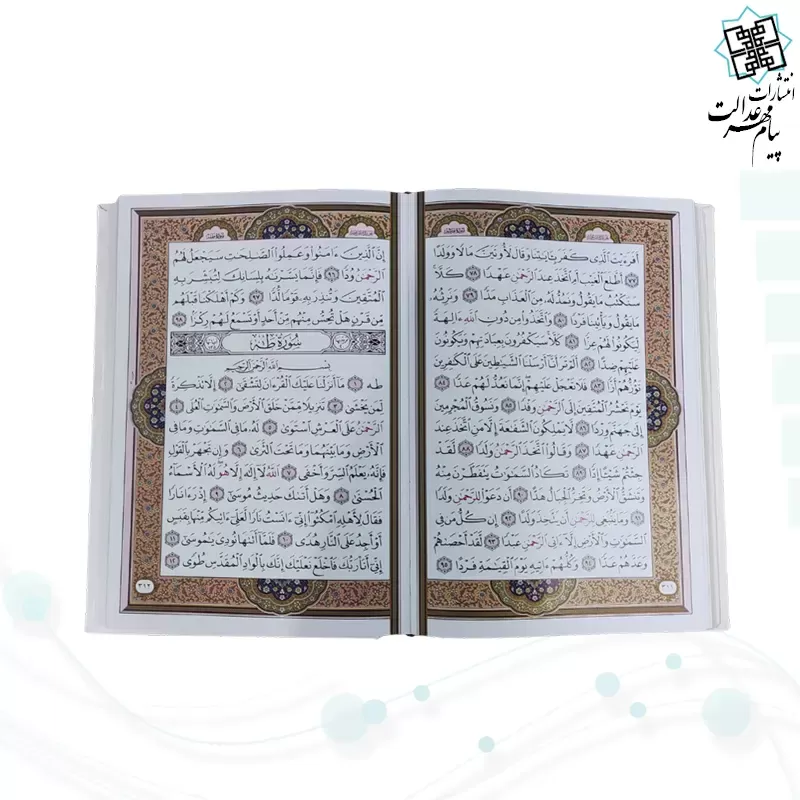 انتشارات
پیام مهر عدالت
أَفَرَءَيْتَ الَّذِى كَفَرَ بِـَٔايَٰتِنَا وَقَالَ لَأُوتَيَنَّ مَالًا وَوَلَدًا
٧٧ أَطَّلَعَ الْغَيْبَ أَمِ اتَّخَذَ عِندَ الرَّحْمَٰنِ عَهْدًا ٧٨ كَلَّا
سَنَكْتُبُ مَا يَقُولُ وَنَمُدُّ لَهُۥ مِنَ الْعَذَابِ مَدًّا ٧٩ وَنَرِثُهُۥ
مَا يَقُولُ وَيَأْتِينَا فَرْدًا ٨٠ وَاتَّخَذُوا۟ مِن دُونِ اللَّهِ ءَالِهَةً
لِّيَكُونُوا۟ لَهُمْ عِزًّا ٨١ كَلَّا سَيَكْفُرُونَ بِعِبَادَتِهِمْ وَيَكُونُونَ
عَلَيْهِمْ ضِدًّا ٨٢ أَلَمْ تَرَ أَنَّا أَرْسَلْنَا الشَّيَٰطِينَ عَلَى الْكَٰفِرِينَ
تَؤُزُّهُمْ أَزًّا ٨٣ فَلَا تَعْجَلْ عَلَيْهِمْ إِنَّمَا نَعُدُّ لَهُمْ عَدًّا ٨٤
يَوْمَ نَحْشُرُ الْمُتَّقِينَ إِلَى الرَّحْمَٰنِ وَفْدًا ٨٥ وَنَسُوقُ الْمُجْرِمِينَ
إِلَىٰ جَهَنَّمَ وِرْدًا ٨٦ لَّا يَمْلِكُونَ الشَّفَٰعَةَ إِلَّا مَنِ اتَّخَذَ عِندَ
الرَّحْمَٰنِ عَهْدًا ٨٧ وَقَالُوا۟ اتَّخَذَ الرَّحْمَٰنُ وَلَدًا ٨٨ لَّقَدْ
جِئْتُمْ شَيْـًٔا إِدًّا ٨٩ تَكَادُ السَّمَٰوَٰتُ يَتَفَطَّرْنَ مِنْهُ
وَتَنشَقُّ الْأَرْضُ وَتَخِرُّ الْجِبَالُ هَدًّا ٩٠ أَن دَعَوْا۟ لِلرَّحْمَٰنِ وَلَدًا
٩١ وَمَا يَنۢبَغِى لِلرَّحْمَٰنِ أَن يَتَّخِذَ وَلَدًا ٩٢ إِن كُلُّ مَن فِى
السَّمَٰوَٰتِ وَالْأَرْضِ إِلَّا ءَاتِى الرَّحْمَٰنِ عَبْدًا ٩٣ لَّقَدْ أَحْصَىٰهُمْ
وَعَدَّهُمْ عَدًّا ٩٤ وَكُلُّهُمْ ءَاتِيهِ يَوْمَ الْقِيَٰمَةِ فَرْدًا ٩٥
٣١١
إِنَّ الَّذِينَ ءَامَنُوا۟ وَعَمِلُوا۟ الصَّٰلِحَٰتِ سَيَجْعَلُ لَهُمُ
الرَّحْمَٰنُ وُدًّا ٩٦ فَإِنَّمَا يَسَّرْنَٰهُ بِلِسَانِكَ لِتُبَشِّرَ بِهِ
الْمُتَّقِينَ وَتُنذِرَ بِهِۦ قَوْمًا لُّدًّا ٩٧ وَكَمْ أَهْلَكْنَا قَبْلَهُم
مِّن قَرْنٍ هَلْ تُحِسُّ مِنْهُم مِّنْ أَحَدٍ أَوْ تَسْمَعُ لَهُمْ رِكْزًا ٩٨
سُورَةُ طه
بِسْمِ اللَّهِ الرَّحْمَٰنِ الرَّحِيمِ
طه ١ مَا أَنزَلْنَا عَلَيْكَ الْقُرْءَانَ لِتَشْقَىٰ ٢ إِلَّا تَذْكِرَةً
لِّمَن يَخْشَىٰ ٣ تَنزِيلًا مِّمَّنْ خَلَقَ الْأَرْضَ وَالسَّمَٰوَٰتِ الْعُلَى ٤
الرَّحْمَٰنُ عَلَى الْعَرْشِ اسْتَوَىٰ ٥ لَهُۥ مَا فِى السَّمَٰوَٰتِ وَمَا فِى
الْأَرْضِ وَمَا بَيْنَهُمَا وَمَا تَحْتَ الثَّرَىٰ ٦ وَإِن تَجْهَرْ بِالْقَوْلِ
فَإِنَّهُۥ يَعْلَمُ السِّرَّ وَأَخْفَى ٧ اللَّهُ لَا إِلَٰهَ إِلَّا هُوَ لَهُ الْأَسْمَاءُ
الْحُسْنَىٰ ٨ وَهَلْ أَتَىٰكَ حَدِيثُ مُوسَىٰ ٩ إِذْ رَءَا نَارًا
فَقَالَ لِأَهْلِهِ امْكُثُوا۟ إِنِّى ءَانَسْتُ نَارًا لَّعَلِّى ءَاتِيكُم مِّنْهَا بِقَبَسٍ
أَوْ أَجِدُ عَلَى النَّارِ هُدًى ١٠ فَلَمَّا أَتَىٰهَا نُودِىَ يَٰمُوسَىٰ ١١
إِنِّى أَنَا۠ رَبُّكَ فَاخْلَعْ نَعْلَيْكَ إِنَّكَ بِالْوَادِ الْمُقَدَّسِ طُوًى ١٢
٣١٢